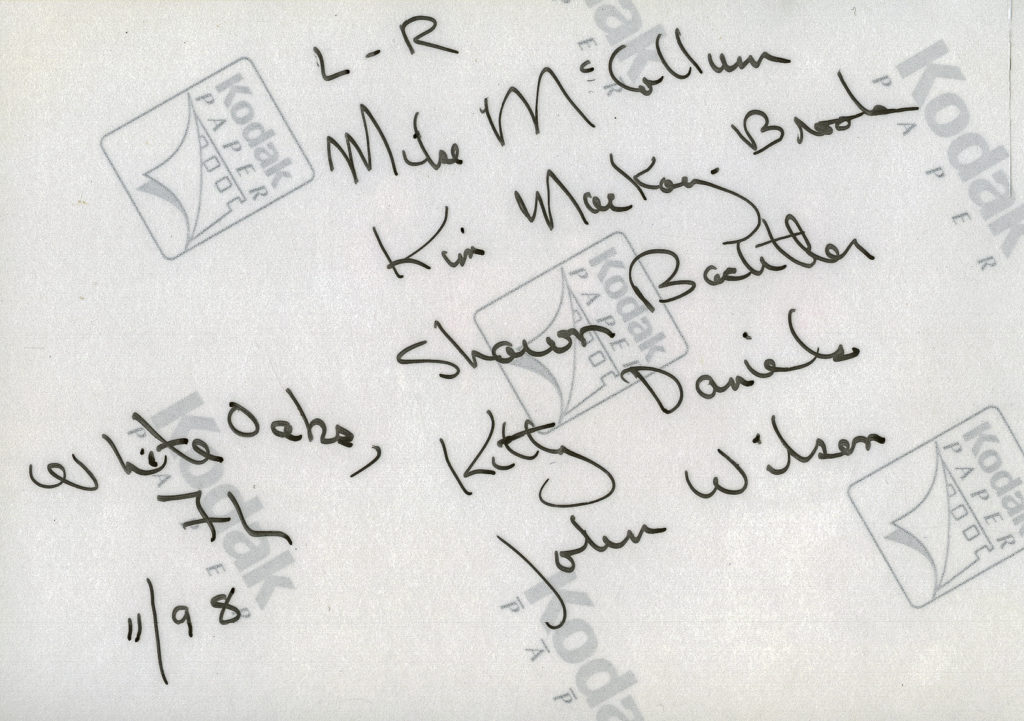 L-R
Mike McCollum
Kim Mackay Brooks
Shawn Bachtler
Kitty Daniels
John Wilson
White Oaks,
FL
11/98
Kodak
PAPER
Kodak
PAPER
Kodak
PAPER
Kodak
PAPER
Kodak
PAPER
Kodak
PAP
Kodak
PAPER